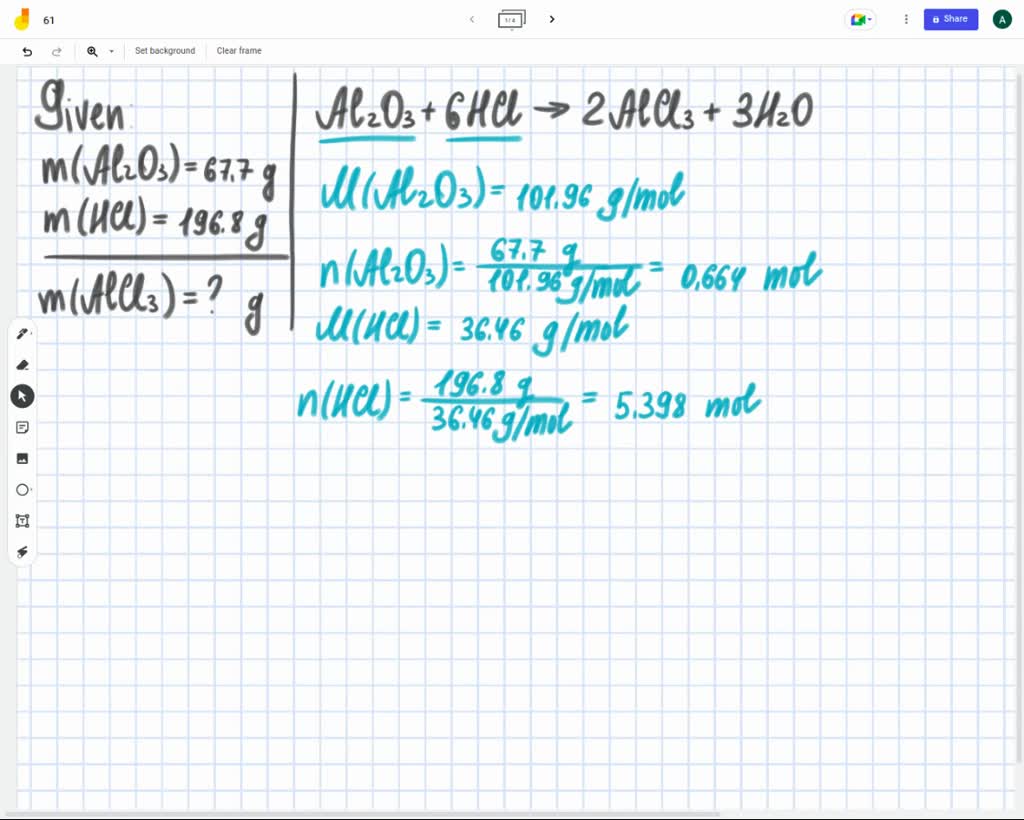 61
1/4
Share
A
Set background
Clear frame
Given:
m(Al₂O₃) = 67.7 g
m(HCl) = 196.8 g
m(AlCl₃) = ? g
Al₂O₃ + 6HCl → 2AlCl₃ + 3H₂O
M(Al₂O₃) = 101.96 g/mol
n(Al₂O₃) = 67.7 g / 101.96 g/mol = 0,664 mol
M(HCl) = 36.46 g/mol
n(HCl) = 196.8 g / 36.46 g/mol = 5.398 mol